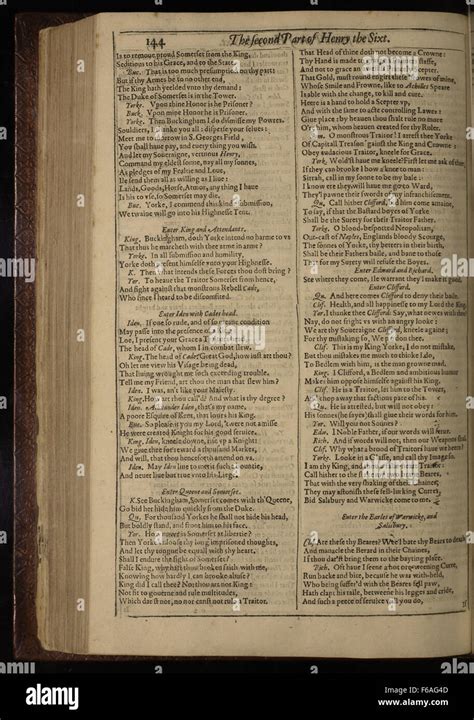 144 The second Part of Henry the Sixt.
Is to remoue proud Somerset from the King,
Seditious to his Grace, and to the State.
Buc. That is too much presumption on thy part:
But if thy Armes be to no other end,
The King hath yeelded vnto thy demand:
The Duke of Somerset is in the Tower.
Yorke. Vpon thine Honor is he Prisoner?
Buck. Vpon mine Honor he is Prisoner.
Yorke. Then Buckingham I do dismisse my Powres.
Souldiers, I thanke you all: disperse your selues:
Meet me to morrow in S. Georges Field,
You shall haue pay, and euery thing you wish.
And let my Soueraigne, vertuous Henry,
Command my eldest sonne, nay all my sonnes,
As pledges of my Fealtie and Loue,
Ile send them all as willing as I liue:
Lands, Goods, Horse, Armor, any thing I haue
Is his to vse, so Somerset may die.
Buc. Yorke, I commend this kinde submission,
We twaine will go into his Highnesse Tent.
Enter King and Attendants.
King. Buckingham, doth Yorke intend no harme to vs
That thus he marcheth with thee arme in arme?
Yorke. In all submission and humility,
Yorke doth present himselfe vnto your Highnesse.
K. Then what intends these Forces thou dost bring?
Yor. To heaue the Traitor Somerset from hence,
And fight against that monstrous Rebell Cade,
Who since I heard to be discomfited.
Enter Iden with Cades head.
Iden. If one so rude, and of so meane condition
May passe into the presence of a King:
Loe, I present your Grace a Traitors head,
The head of Cade, whom I in combat slew.
King. The head of Cade? Great God, how iust art thou?
Oh let me view his Visage being dead,
That liuing wrought me such exceeding trouble.
Tell me my Friend, art thou the man that slew him?
Iden. I was, an't like your Maiesty.
King. How art thou call'd? And what is thy degree?
Iden. Alexander Iden, that's my name,
A poore Esquire of Kent, that loues his King.
Buc. So please it you my Lord, 'twere not amisse
He were created Knight for his good seruice.
King. Iden, kneele downe, rise vp a Knight:
We giue thee for reward a thousand Markes,
And will, that thou henceforth attend on vs.
Iden. May Iden liue to merit such a bountie,
And neuer liue but true vnto his Liege.
Enter Queene and Somerset.
K. See Buckingham, Somerset comes with th'Queene,
Go bid her hide him quickly from the Duke.
Qu. For thousand Yorkes he shall not hide his head,
But boldly stand, and front him to his face.
Yor. How now? is Somerset at libertie?
Then Yorke vnloose thy long imprisoned thoughts,
And let thy tongue be equall with thy heart.
Shall I endure the sight of Somerset?
False King, why hast thou broken faith with me,
Knowing how hardly I can brooke abuse?
King did I call thee? No: thou art not King:
Not fit to gouerne and rule multitudes,
Which dar'st not, no nor canst not rule a Traitor.
That Head of thine doth not become a Crowne:
Thy Hand is made to graspe a Palmers staffe,
And not to grace an awefull Princely Scepter.
That Gold, must round engirt these browes of mine,
Whose Smile and Frowne, like to Achilles Speare
Is able with the change, to kill and cure.
Heere is a hand to hold a Scepter vp,
And with the same to acte controlling Lawes:
Giue place: by heauen thou shalt rule no more
O're him, whom heauen created for thy Ruler.
Som. O monstrous Traitor! I arrest thee Yorke
Of Capitall Treason 'gainst the King and Crowne:
Obey audacious Traitor, kneele for Grace.
York. Wold'st haue me kneele? First let me ask of thee,
If they can brooke I bow a knee to man:
Sirrah, call in my sonne to be my bale:
I know ere they will haue me go to Ward,
They'l pawne their swords of my infranchisement.
Qu. Call hither Clifford, bid him come amaine,
To say, if that the Bastard boyes of Yorke
Shall be the Surety for their Traitor Father.
Yorke. O blood-bespotted Neopolitan,
Out-cast of Naples, Englands bloody Scourge,
The sonnes of Yorke, thy betters in their birth,
Shall be their Fathers baile, and bane to those
That for my Surety will refuse the Boyes.
Enter Edward and Richard.
See where they come, Ile warrant they'l make it good.
Enter Clifford.
Qu. And here comes Clifford to deny their baile.
Clif. Health, and all happinesse to my Lord the King.
Yor. I thanke thee Clifford: Say, what newes with thee?
Nay, do not fright vs with an angry looke:
We are thy Soueraigne Clifford, kneele againe;
For thy mistaking so, We pardon thee.
Clif. This is my King Yorke, I do not mistake,
But thou mistakes me much to thinke I do,
To Bedlem with him, is the man growne mad.
King. I Clifford, a Bedlem and ambitious humor
Makes him oppose himselfe against his King.
Clif. He is a Traitor, let him to the Tower,
And chop away that factious pate of his.
Qu. He is atrested, but will not obey:
His sonnes (he sayes) shall giue their words for him.
Yor. Will you not Sonnes?
Edw. I Noble Father, if our words will serue.
Rich. And if words will not, then our Weapons shal.
Clif. Why what a brood of Traitors haue we heere?
Yorke. Looke in a Glasse, and call thy Image so.
I am thy King, and thou a false-heart Traitor:
Call hither to the stake my two braue Beares,
That with the very shaking of their Chaines,
They may astonish these fell-lurking Curres,
Bid Salsbury and Warwicke come to me.
Enter the Earles of Warwicke, and
Salisbury.
Clif. Are these thy Beares? Wee'l bate thy Bears to death
And manacle the Berard in their Chaines,
If thou dar'st bring them to the bayting place.
Rich. Oft haue I seene a hot ore-weening Curre,
Run backe and bite, because he was with-held,
Who being suffer'd with the Beares fell paw,
Hath clapt his taile, betweene his legges and cride,
And such a peece of seruice will you do,
alamy
Image ID: F6AG4D
www.alamy.com